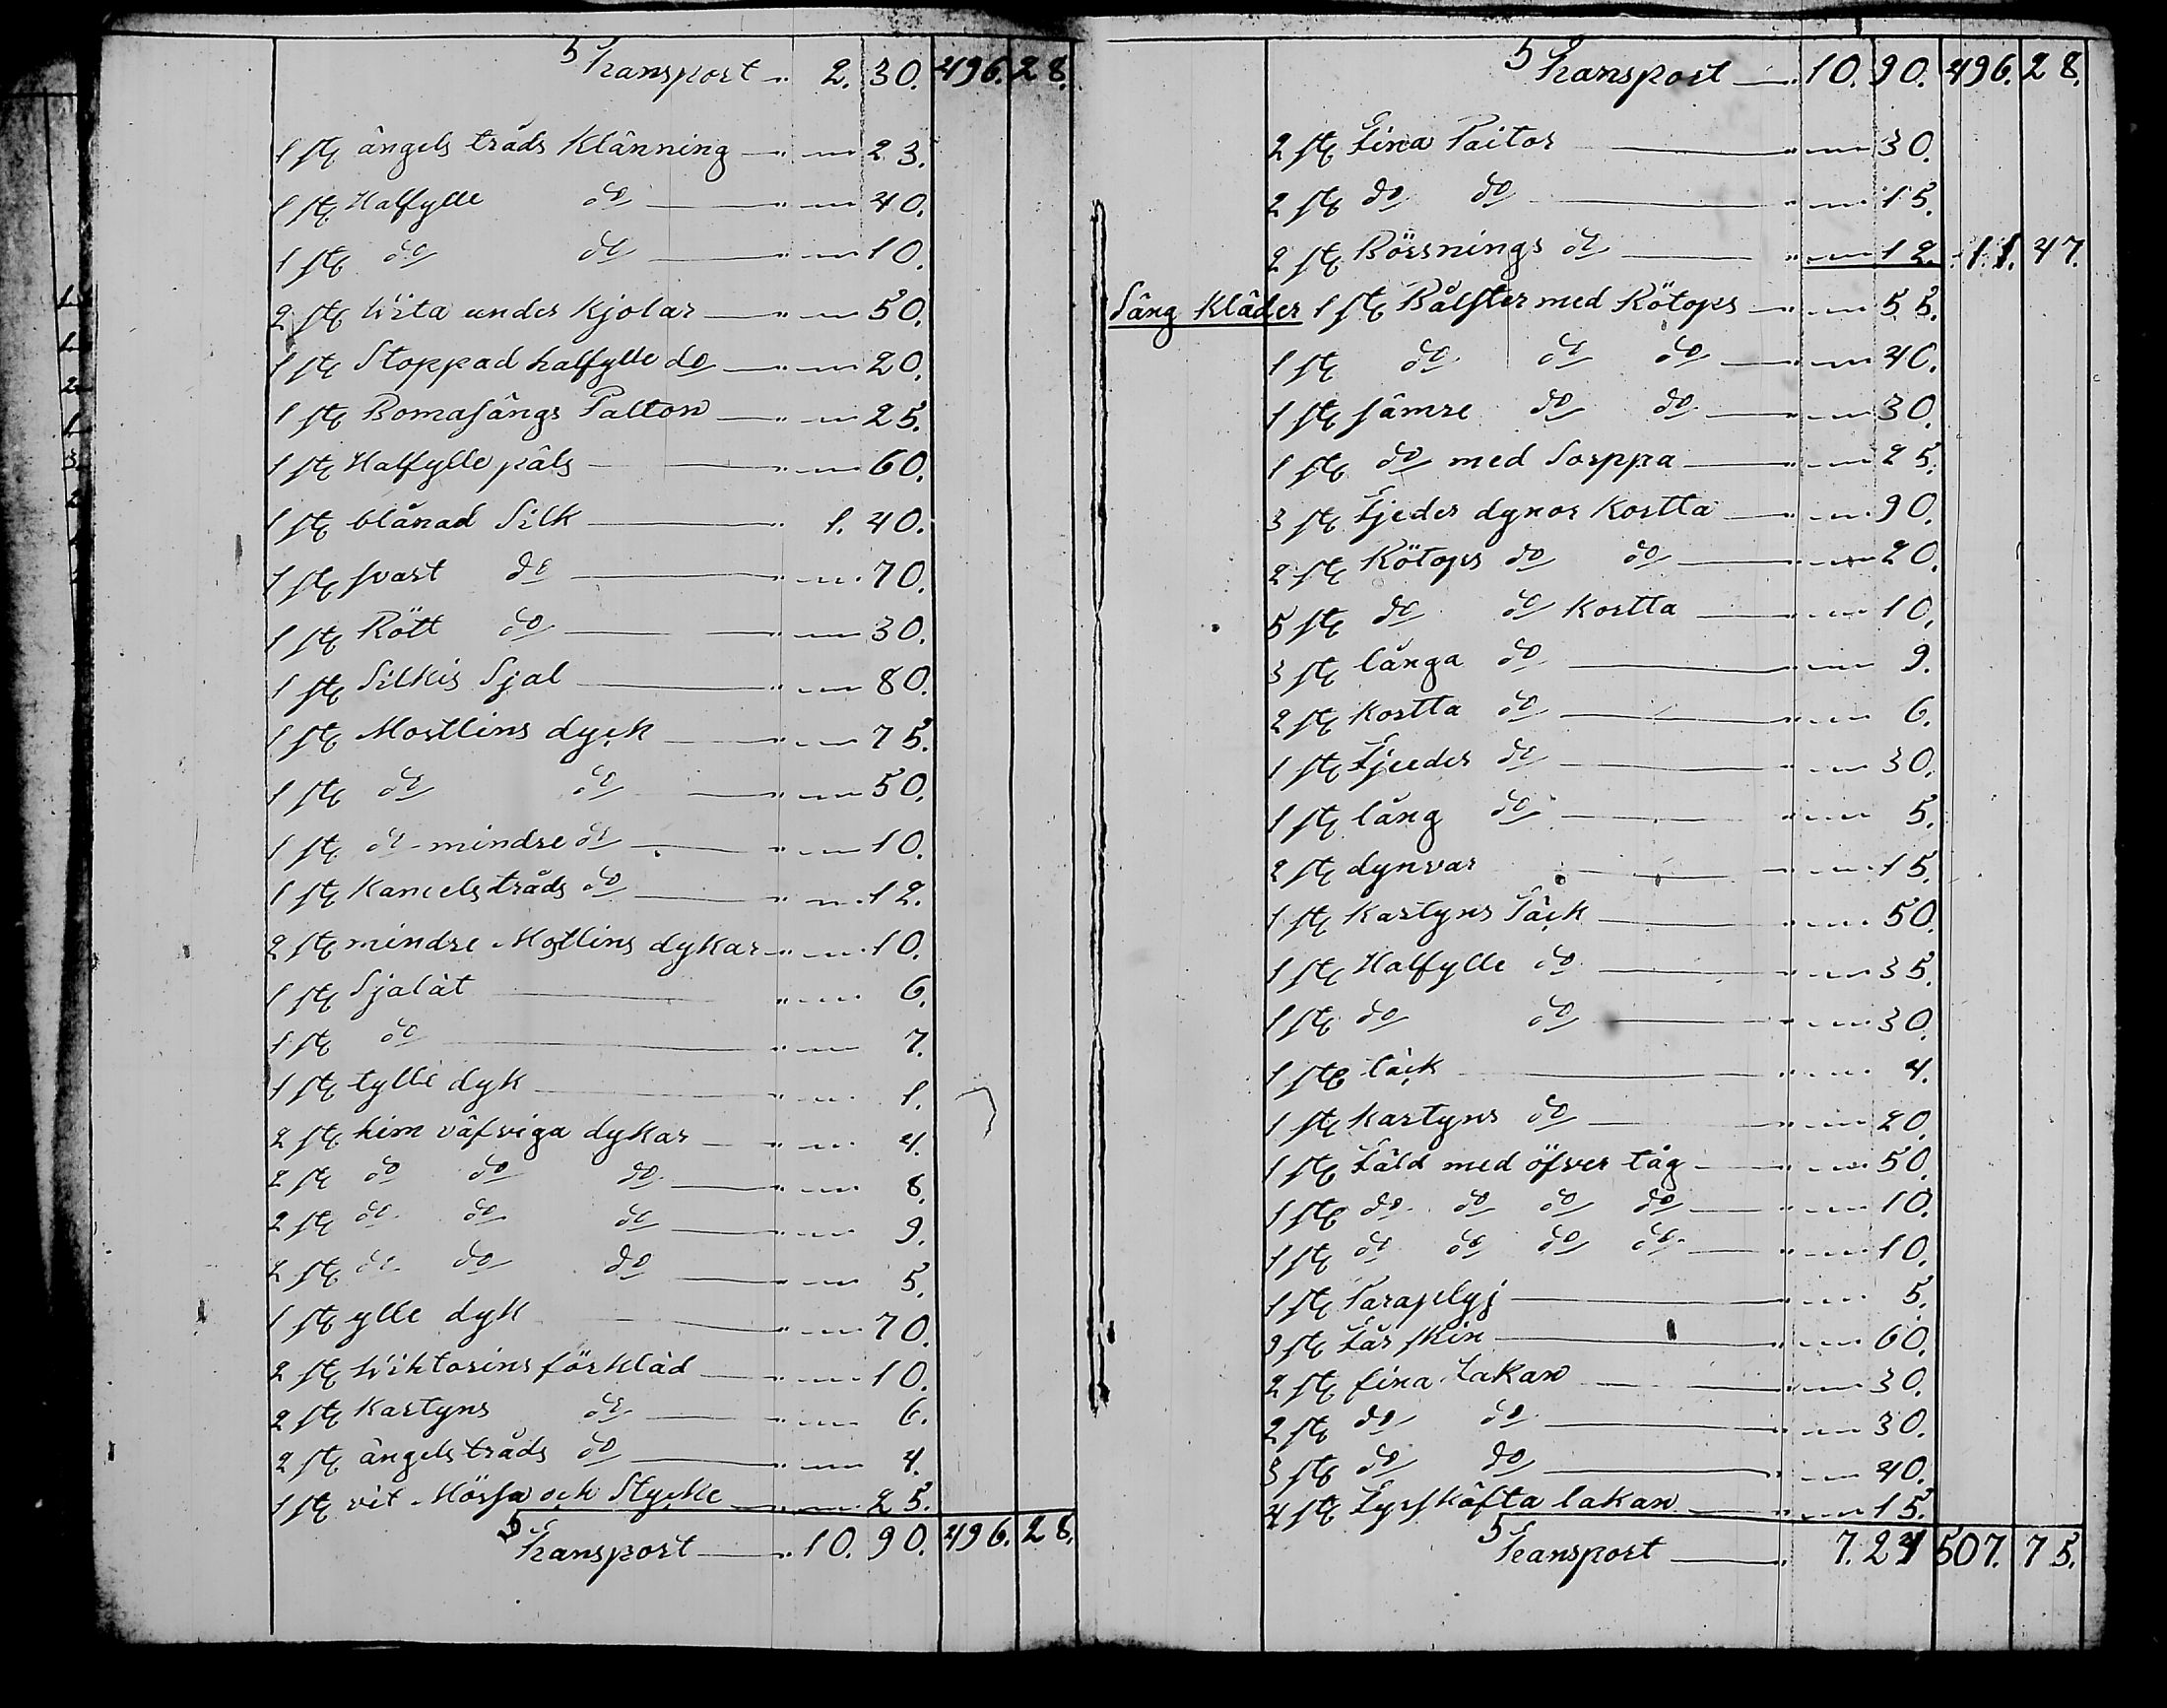 Transport „ 2. 30. 496. 28.
1 st ängels tråds Klänning „ „ 23.
1 st Halfylle do „ „ 40.
1 st do do „ „ 10.
2 st Wita under Kjolar „ „ 50.
1 st Stoppad halfylle do „ „ 20.
1 st Bomasångs Palton „ „ 25.
1 st Halfylle päls „ „ 60.
1 st blånad Silk 1. 40.
1 st svart do „ „ 70.
1 st Rött do „ „ 30.
1 st Silkis Sjal „ „ 80.
1 st Mostlins dyck „ „ 75.
1 st do do „ „ 50.
1 st do mindre do „ „ 10.
1 st Kamelstråds do „ „ 12.
2 st mindre Mostlins dykar „ „ 10.
1 st Sjalåt „ „ 6.
1 st do „ „ 7.
1 st tylle dyk „ „ 1.
2 st him väfviga dykar „ „ 4.
2 st do do do „ „ 8.
2 st do do do „ „ 9.
2 st do do do „ „ 5.
1 st ylle dyk „ „ 70.
2 st Wiktorins förkläd „ „ 10.
2 st Kartyns do „ „ 6.
2 st ängelstråds do „ „ 4.
1 st vit Mössa och Stycke „ „ 25.
Transport „ 10. 90. 496. 28.
Transport „ 10. 90. 496. 28.
2 st Fina Paitor „ „ 30.
2 st do do „ „ 15.
2 st Börsnings do „ „ 12. 11. 47.
Säng Kläder 1 st Bålster med Rötops „ „ 55.
1 st do do do „ „ 40.
1 st sämre do do „ „ 30.
1 st do med Sorppa „ „ 25.
3 st Fjeder dynor Kortta „ „ 90.
2 st Rötops do do „ „ 20.
5 st do do Kortta „ „ 10.
3 st långa do „ „ 9.
2 st Kortta do „ „ 6.
1 st Fjeeder do „ „ 30.
1 st lång do „ „ 5.
2 st dynvar „ „ 15.
1 st Kartyns Täck „ „ 50.
1 st Halfylle do „ „ 35.
1 st do do „ „ 30.
1 st täck „ „ 4.
1 st Kartyns do „ „ 20.
1 st Fäld med öfver tåg „ „ 50.
1 st do do do do „ „ 10.
1 st do do do do „ „ 10.
1 st Paraplyj „ „ 5.
3 st Får skin „ „ 60.
2 st fina Lakan „ „ 30.
2 st do do „ „ 30.
3 st do do „ „ 40.
4 st Fyrskäfta lakan „ „ 15.
Transport „ 7. 24 507. 75.